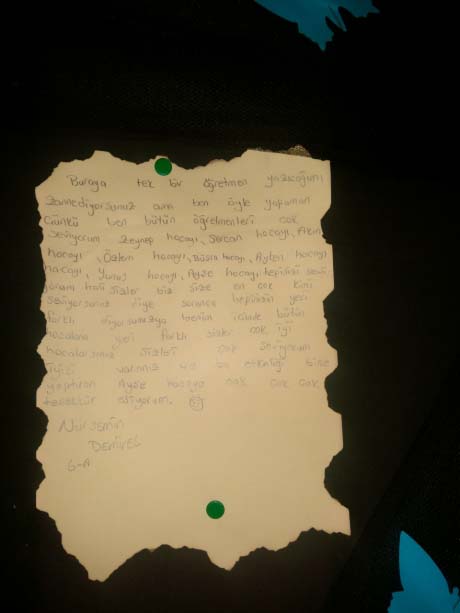 Buraya tek bir öğretmen yazacağımı
zannediyorsunuz ama ben öyle yapamam
Çünkü ben bütün öğretmenleri çok
seviyorum Zeynep hocayı, Sercan hocayı, Akın
hocayı, Özlem hocayı, Büşra hocayı, Ayten hocayı
hocayı, Yunus hocayı, Ayşe hocayı hepinizi sevi
yorum hani sizler biz size en çok kimi
seviyorsunuz diye sorunca hepinizin yeri
farklı diyorsunuzya benim içimde bütün
hocaların yeri farklı sizler çok iyi
hocalarsınız sizleri çok seviyorum
İyiki varsınız ve bu etkinliği bize
yaptıran Ayşe hocaya çok çok çok
teşekkür ediyorum.
Nursemin
Demirel
6-A